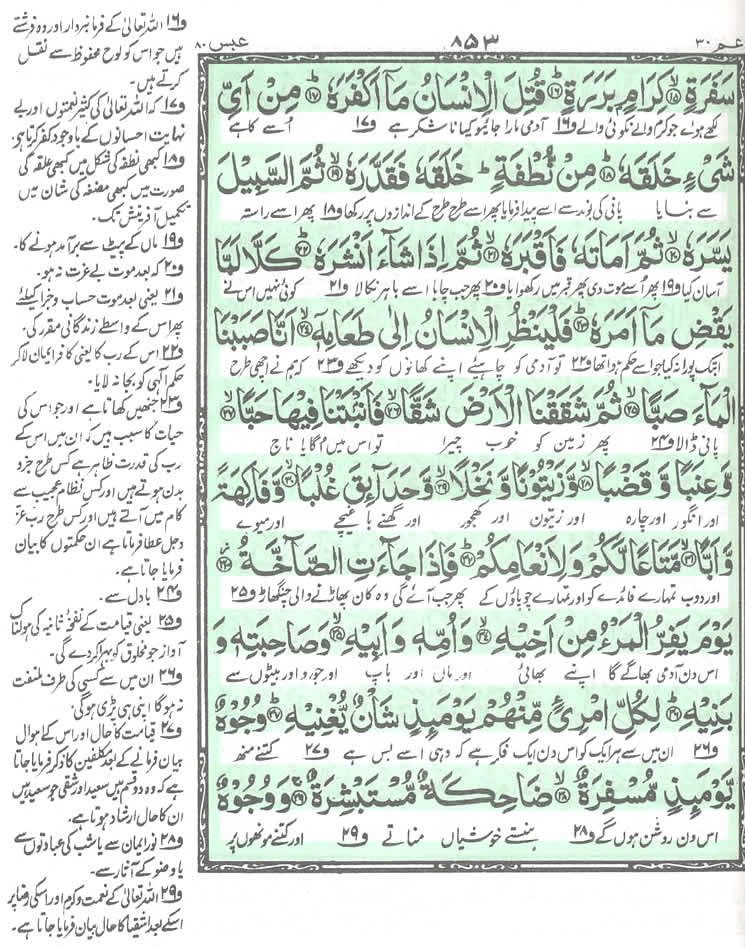 عم ۳۰
۸۵۳
عبس ۸۰
سَفَرَةٍ ۙ﴿۱۵﴾ كِرَامٍۭ بَرَرَةٍ ؕ﴿۱۶﴾ قُتِلَ الْاِنْسَانُ مَاۤ اَكْفَرَهٗ ؕ﴿۱۷﴾ مِنْ اَیِّ
لکھے ہوئے جو کرم والے نکوئی والے و۱۶ آدمی مارا جائیو کیا ناشکر ہے و۱۷ اُسے کاہے
شَیْءٍ خَلَقَهٗ ؕ﴿۱۸﴾ مِنْ نُّطْفَةٍ ؕ خَلَقَهٗ فَقَدَّرَهٗ ۙ﴿۱۹﴾ ثُمَّ السَّبِیْلَ
سے بنایا پانی کی بوند سے اسے پیدا فرمایا پھر اسے طرح طرح کے اندازوں پر رکھا و۱۸ پھر اسے راستہ
یَسَّرَهٗ ۙ﴿۲۰﴾ ثُمَّ اَمَاتَهٗ فَاَقْبَرَهٗ ۙ﴿۲۱﴾ ثُمَّ اِذَا شَآءَ اَنْشَرَهٗ ؕ﴿۲۲﴾ كَلَّا لَمَّا
آسان کیا و۱۹ پھر اُسے موت دی پھر قبر میں رکھوایا و۲۰ پھر جب چاہا اسے باہر نکالا و۲۱ کوئی نہیں اس نے
یَقْضِ مَاۤ اَمَرَهٗ ؕ﴿۲۳﴾ فَلْیَنْظُرِ الْاِنْسَانُ اِلٰی طَعَامِهٖۤ ۙ﴿۲۴﴾ اَنَّا صَبَبْنَا
ابتک پورا نہ کیا جو اسے حکم ہوا تھا و۲۲ تو آدمی کو چاہئیے اپنے کھانوں کو دیکھے و۲۳ کہ ہم نے اچھی طرح
الْمَآءَ صَبًّا ۙ﴿۲۵﴾ ثُمَّ شَقَقْنَا الْاَرْضَ شَقًّا ۙ﴿۲۶﴾ فَاَنْۢبَتْنَا فِیْهَا حَبًّا ۙ﴿۲۷﴾
پانی ڈالا و۲۴ پھر زمین کو خوب چیرا تو اس میں اُگایا ناج
وَّ عِنَبًا وَّ قَضْبًا ۙ﴿۲۸﴾ وَّ زَیْتُوْنًا وَّ نَخْلًا ۙ﴿۲۹﴾ وَّ حَدَآىِٕقَ غُلْبًا ۙ﴿۳۰﴾ وَّ فَاكِهَةً
اور انگور اور چارہ اور زیتون اور کھجور اور گھنے باغیچے اور میوے
وَّ اَبًّا ۙ﴿۳۱﴾ مَّتَاعًا لَّكُمْ وَ لِاَنْعَامِكُمْ ؕ﴿۳۲﴾ فَاِذَا جَآءَتِ الصَّآخَّةُ ۫﴿۳۳﴾
اور دوب تمہارے فائدے کو اور تمہارے چوپاؤں کے پھر جب آئے گی وہ کان پھاڑنے والی چنگھاڑ و۲۵
یَوْمَ یَفِرُّ الْمَرْءُ مِنْ اَخِیْهِ ۙ﴿۳۴﴾ وَ اُمِّهٖ وَ اَبِیْهِ ۙ﴿۳۵﴾ وَ صَاحِبَتِهٖ وَ
اس دن آدمی بھاگے گا اپنے بھائی اور ماں اور باپ اور جورو اور بیٹوں سے
بَنِیْهِ ؕ﴿۳۶﴾ لِكُلِّ امْرِئٍ مِّنْهُمْ یَوْمَىِٕذٍ شَاْنٌ یُّغْنِیْهِ ؕ﴿۳۷﴾ وُجُوْهٌ
و۲۶ ان میں سے ہر ایک کو اس دن ایک فکر ہے کہ وہی اسے بس ہے و۲۷ کتنے منھ
یَّوْمَىِٕذٍ مُّسْفِرَةٌ ۙ﴿۳۸﴾ ضَاحِكَةٌ مُّسْتَبْشِرَةٌ ۚ﴿۳۹﴾ وَ وُجُوْهٌ
اس دن روشن ہوں گے و۲۸ ہنستے خوشیاں مناتے و۲۹ اور کتنے مونھوں پر
و۱۶ اللہ تعالیٰ کے فرمانبردار اور وہ فرشتے
ہیں جو اس کو لوح محفوظ سے نقل
کرتے ہیں۔
و۱۷ کہ اللہ تعالیٰ کی کثیر نعمتوں اور بے
نہایت احسانوں کے باوجود کفر کرتا ہے۔
و۱۸ کبھی نطفہ کی شکل میں کبھی علقہ کی
صورت میں کبھی مضغہ کی شان میں
تکمیل آفرینش تک۔
و۱۹ ماں کے پیٹ سے برآمد ہونے کا۔
و۲۰ کہ بعد موت بے عزت نہ ہو۔
و۲۱ یعنی بعد موت حساب و جزا کیلئے
پھر اس کے واسطے زندگانی مقرر کی۔
و۲۲ اس کے رب کا یعنی کافر ایمان لا کر
حکم الٰہی کو بجا نہ لایا۔
و۲۳ جنھیں کھاتا ہے اور جو اس کی
حیات کا سبب ہیں کہ ان میں اس کے
رب کی قدرت ظاہر ہے کس طرح جزو
بدن ہوتے ہیں اور کس نظام عجیب سے
کام میں آتے ہیں اور کس طرح رب عزّ
وجل عطا فرماتا ہے ان حکمتوں کا بیان
فرمایا جاتا ہے۔
و۲۴ بادل سے۔
و۲۵ یعنی قیامت کے نفخۂ ثانیہ کی ہولناک
آواز جو مخلوق کو بہرا کر دے گی۔
و۲۶ ان میں سے کسی کی طرف ملتفت
نہ ہوگا اپنی ہی پڑی ہوگی۔
و۲۷ قیامت کا حال اور اس کے اہوال
بیان فرمانے کے بعد مکلفین کا ذکر فرمایا جاتا
ہے کہ وہ دو قسم ہیں سعید اور شقی جو سعید ہیں
ان کا حال ارشاد ہوتا ہے۔
و۲۸ نور ایمان سے یا شب کی عبادتوں سے
یا وضو کے آثار سے۔
و۲۹ اللہ تعالیٰ کے نعمت و کرم اور اسکی رضا پر
اسکے بعد اشقیا کا حال بیان فرمایا جاتا ہے۔